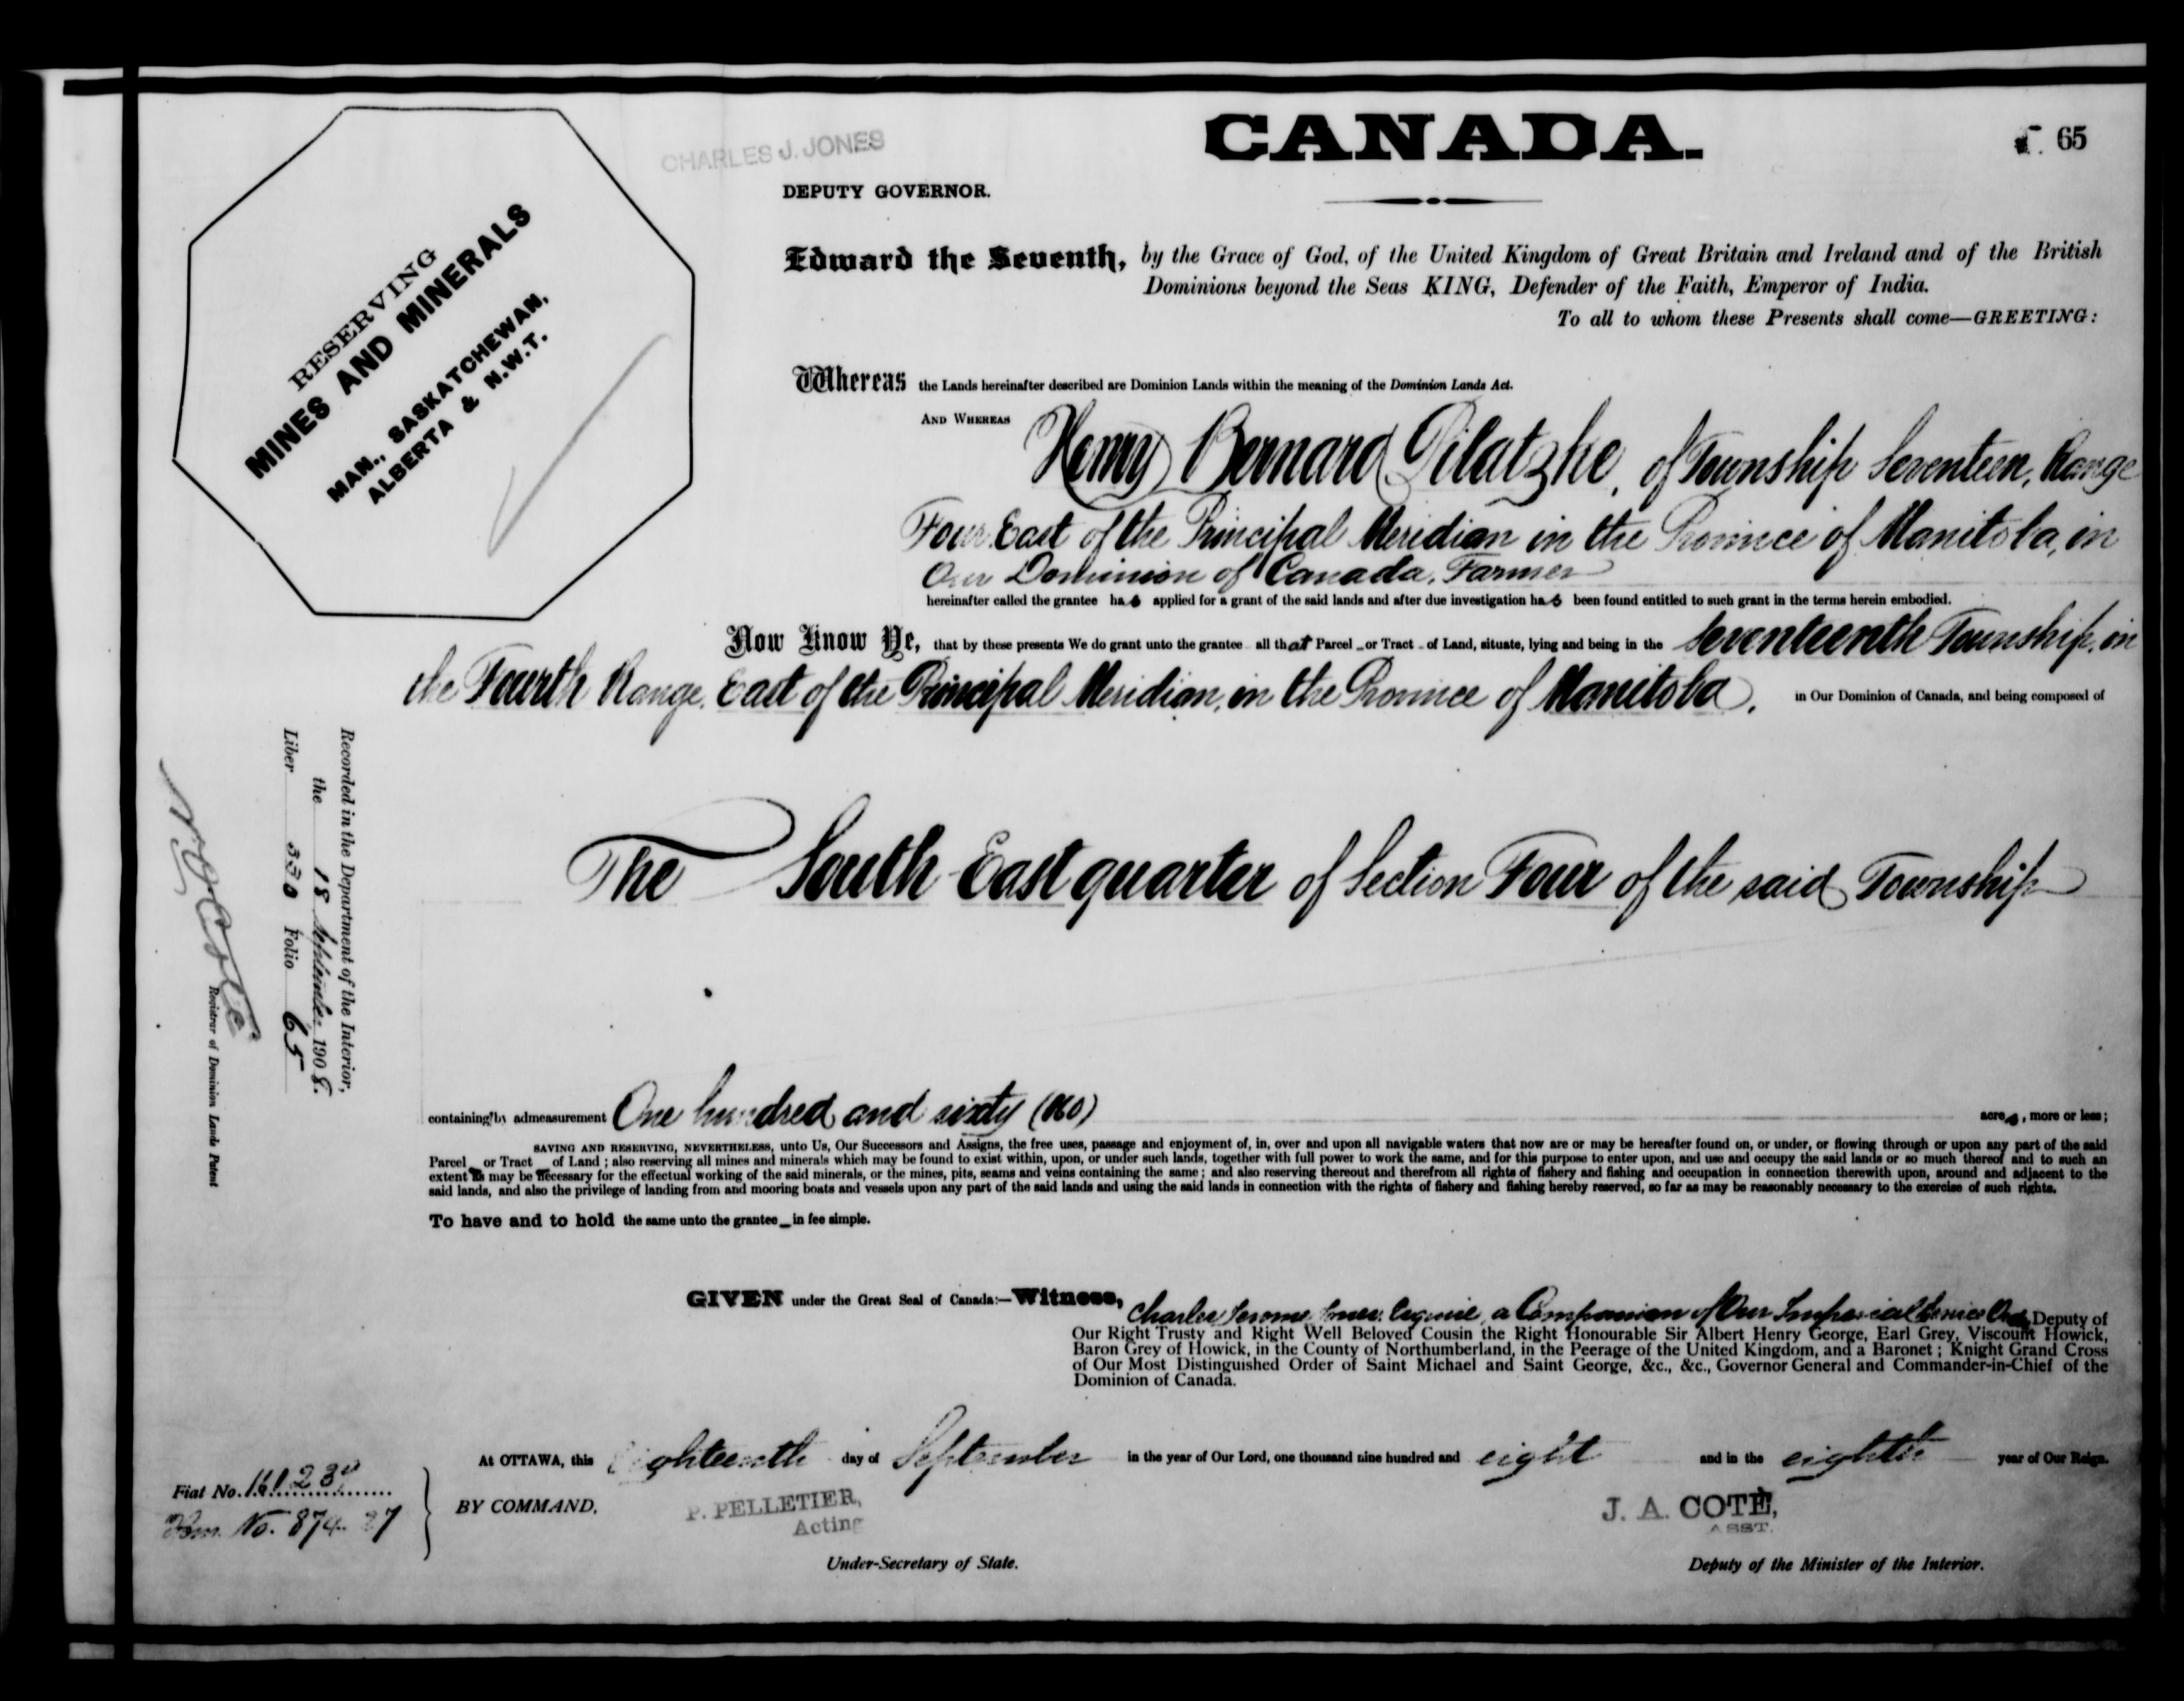 CANADA.
65
CHARLES J. JONES
DEPUTY GOVERNOR.
RESERVING
MINES AND MINERALS
MAN., SASKATCHEWAN,
ALBERTA & N.W.T.
Edward the Seventh, by the Grace of God, of the United Kingdom of Great Britain and Ireland and of the British
Dominions beyond the Seas KING, Defender of the Faith, Emperor of India.
To all to whom these Presents shall come—GREETING:
Whereas the Lands hereinafter described are Dominion Lands within the meaning of the Dominion Lands Act.
AND WHEREAS Henry Bernard Pilatzke, of Township Seventeen, Range
Four East of the Principal Meridian in the Province of Manitoba, in
Our Dominion of Canada, Farmer
hereinafter called the grantee has applied for a grant of the said lands and after due investigation has been found entitled to such grant in the terms herein embodied.
Now Know Ye, that by these presents We do grant unto the grantee all that Parcel or Tract of Land, situate, lying and being in the Seventeenth Township, in
the Fourth Range, East of the Principal Meridian, in the Province of Manitoba, in Our Dominion of Canada, and being composed of
The South East quarter of Section Four of the said Township
containing by admeasurement One hundred and sixty (160) acres, more or less;
SAVING AND RESERVING, NEVERTHELESS, unto Us, Our Successors and Assigns, the free uses, passage and enjoyment of, in, over and upon all navigable waters that now are or may be hereafter found on, or under, or flowing through or upon any part of the said
Parcel or Tract of Land; also reserving all mines and minerals which may be found to exist within, upon, or under such lands, together with full power to work the same, and for this purpose to enter upon, and use and occupy the said lands or so much thereof and to such an
extent as may be necessary for the effectual working of the said minerals, or the mines, pits, seams and veins containing the same; and also reserving thereout and therefrom all rights of fishery and fishing and occupation in connection therewith upon, around and adjacent to the
said lands, and also the privilege of landing from and mooring boats and vessels upon any part of the said lands and using the said lands in connection with the rights of fishery and fishing hereby reserved, so far as may be reasonably necessary to the exercise of such rights.
To have and to hold the same unto the grantee in fee simple.
Recorded in the Department of the Interior,
the 18 September 1908.
Liber Folio 65
N O Coté
Registrar of Dominion Lands Patent
GIVEN under the Great Seal of Canada:—Witness, Charles Jerome Jones, Esquire, a Companion of Our Imperial Service Order, Deputy of
Our Right Trusty and Right Well Beloved Cousin the Right Honourable Sir Albert Henry George, Earl Grey, Viscount Howick,
Baron Grey of Howick, in the County of Northumberland, in the Peerage of the United Kingdom, and a Baronet; Knight Grand Cross
of Our Most Distinguished Order of Saint Michael and Saint George, &c., &c., Governor General and Commander-in-Chief of the
Dominion of Canada.
At OTTAWA, this Eighteenth day of September in the year of Our Lord, one thousand nine hundred and eight and in the eighth year of Our Reign.
Fiat No.
No. 874
BY COMMAND,
P. PELLETIER,
Acting
Under-Secretary of State.
J. A. COTÉ,
ASST.
Deputy of the Minister of the Interior.